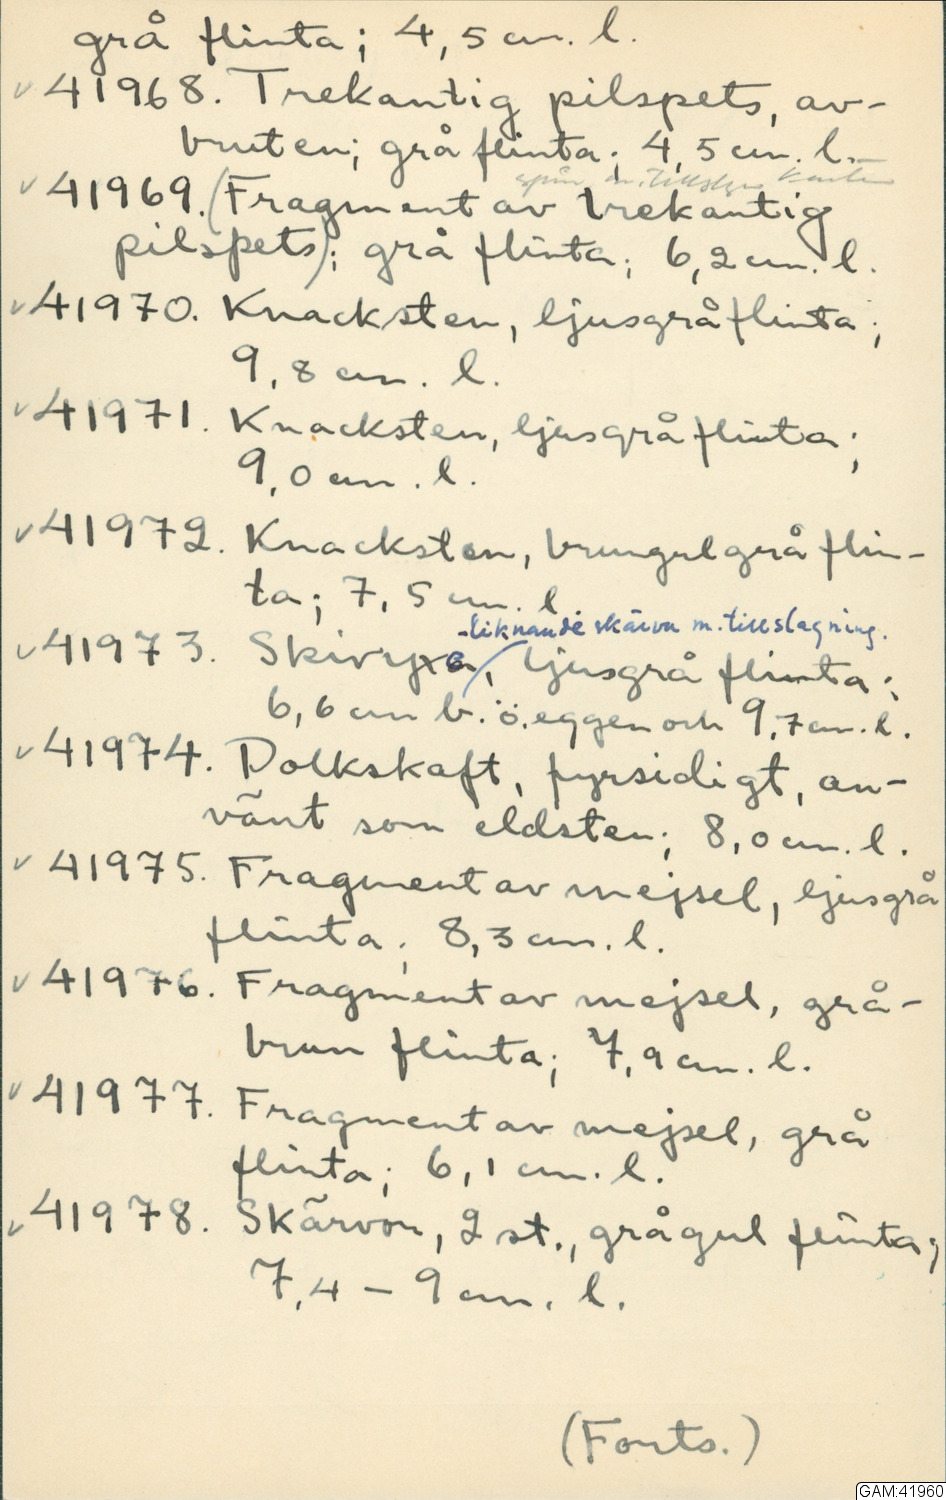 grå flinta; 4,5 cm. l.
v 41968. Trekantig pilspets, av-
bruten; grå flinta; 4,5 cm. l.
spån m. tillslagn kanten
v 41969. (Fragment av trekantig
pilspets); grå flinta; 6,2 cm. l.
v 41970. Knacksten, ljusgrå flinta;
9,8 cm. l.
v 41971. Knacksten, ljusgrå flinta;
9,0 cm. l.
v 41972. Knacksten, brungulgrå flin-
ta; 7,5 cm. l.
-liknande skärva m. tillslagning.
v 41973. Skivyxa, ljusgrå flinta;
6,6 cm b. ö. eggen och 9,7 cm. l.
v 41974. Dolkskaft, fyrsidigt, an-
vänt som eldsten; 8,0 cm. l.
v 41975. Fragment av mejsel, ljusgrå
flinta; 8,3 cm. l.
v 41976. Fragment av mejsel, grå-
brun flinta; 7,9 cm. l.
v 41977. Fragment av mejsel, grå
flinta; 6,1 cm. l.
v 41978. Skärvor, 2 st., grågul flinta;
7,4 – 9 cm. l.
(Forts.)
GAM:41960